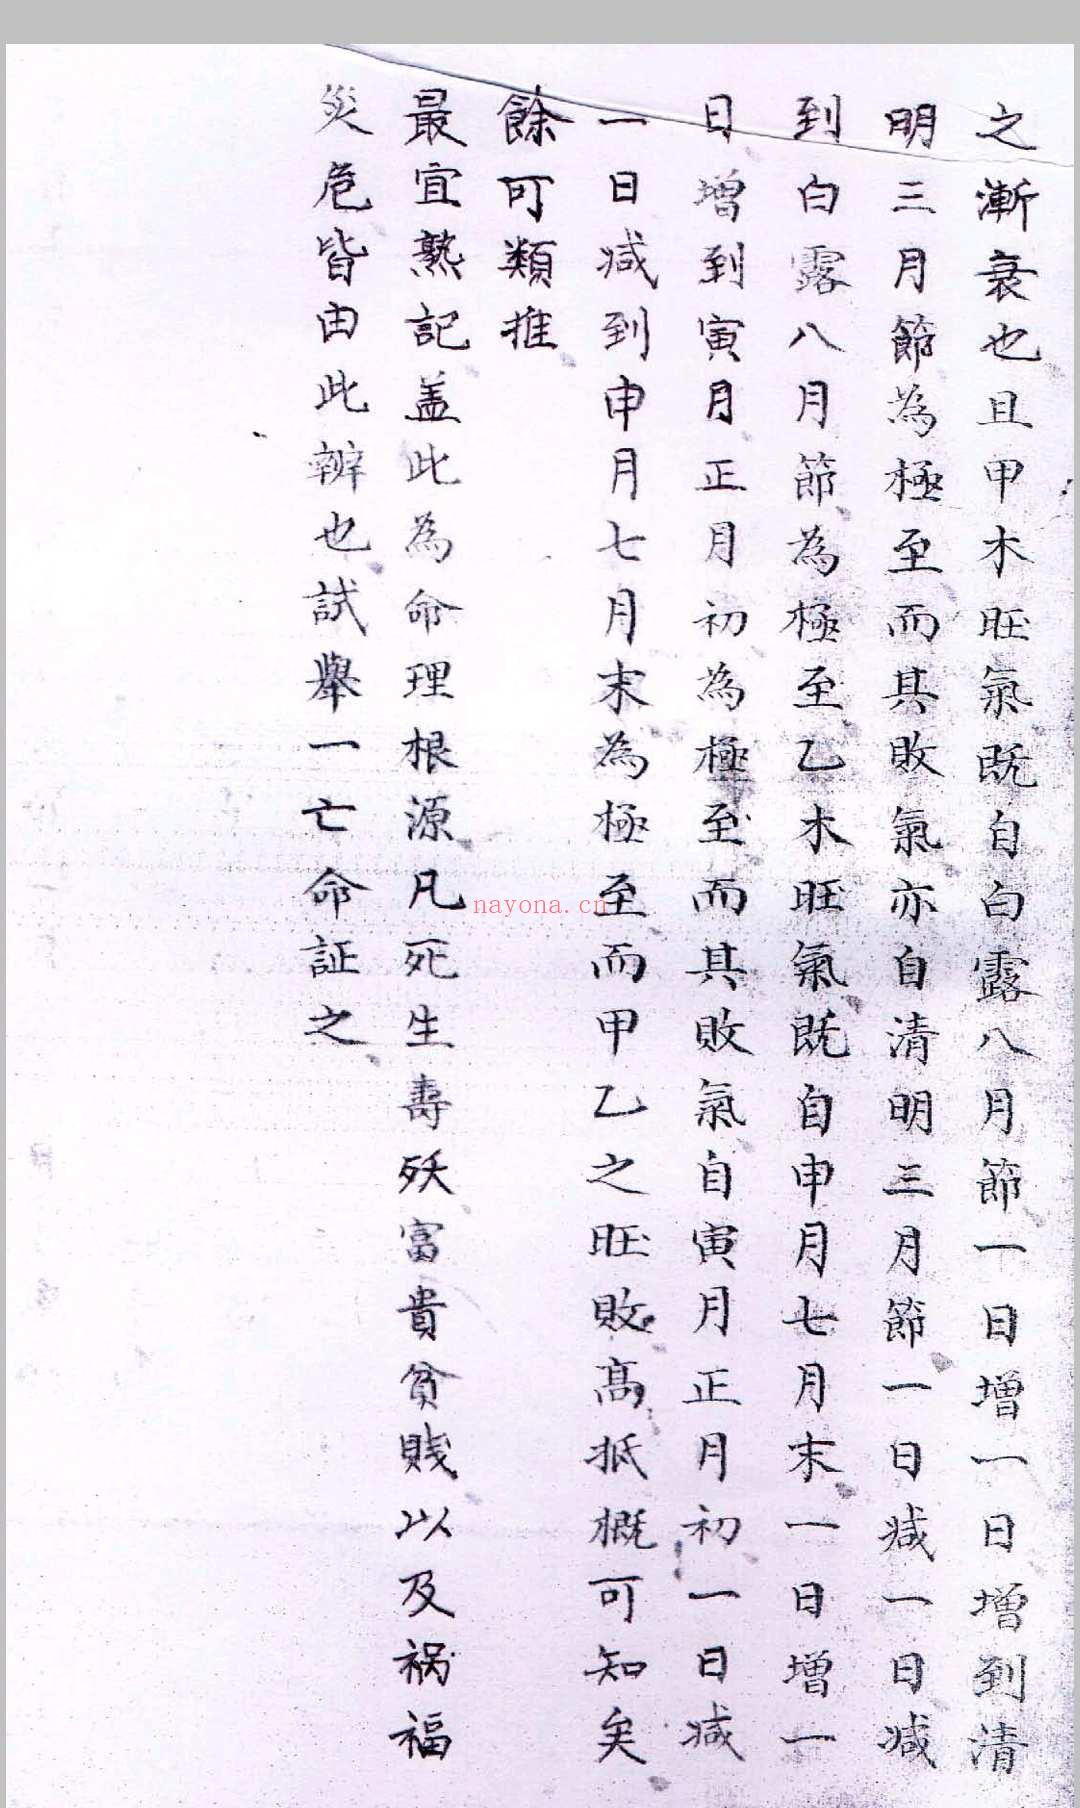 之漸衰也且甲木旺氣既自白露八月節一日增一日增到清
明三月節為極至而其敗氣亦自清明三月節一日减一日减
到白露八月節為極至乙木旺氣既自申月七月末一日增一
日增到寅月正月初為極至而其敗氣自寅月正月初一日减
一日减到申月七月末為極至而甲乙之旺敗高抵概可知矣
餘可類推
最宜熟記盖此為命理根源凡死生壽殀富貴貧賤以及禍福
災危皆由此辦也試舉一亡命証之
nayona.cn